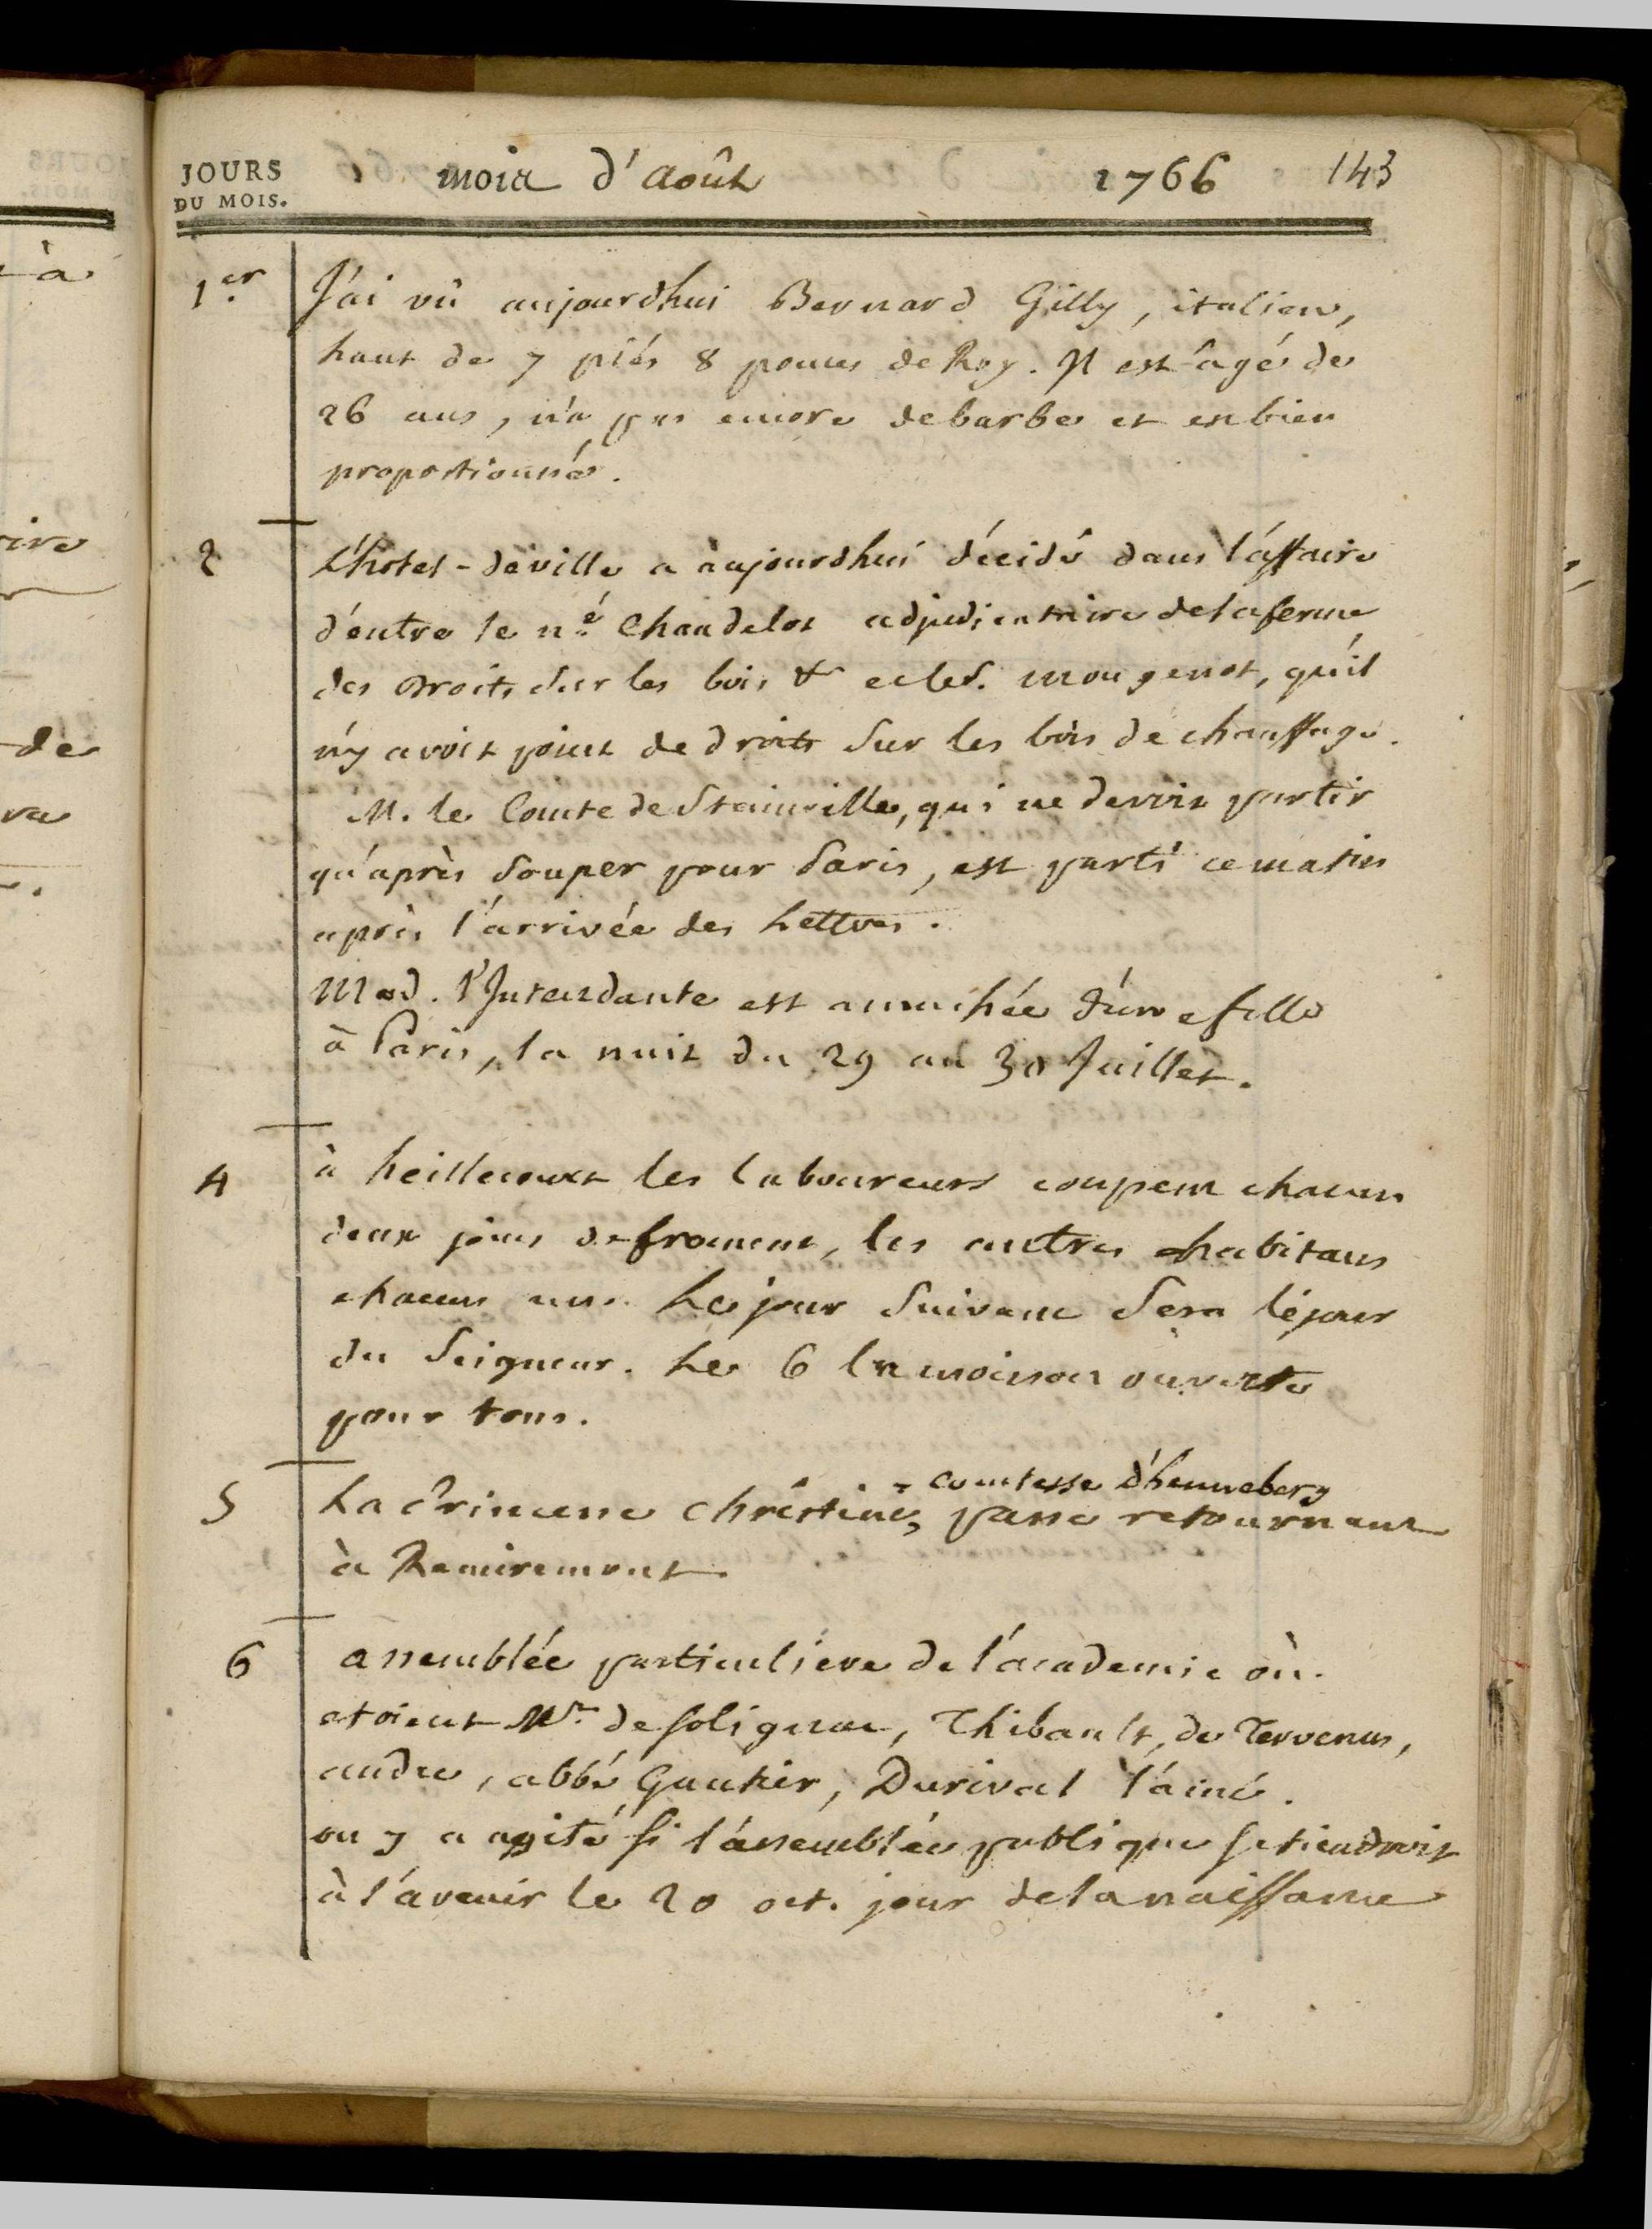 JOURS
DU MOIS.
mois d'Août 1766 143
1er J'ai vû aujourdhui Bernard Gilly, italien,
haut de 7 piés 8 pouces de Roy. Il est âgé de
26 ans, n'a pas encore de barbe et est bien
proportionné.
2 L'hotel-de ville a aujourdhui décidé dans l'affaire
d'entre le n.é Chandelot adjudicataire de la ferme
des droits sur les bois & et le S. Mougenot, qu'il
n'y avoit point de droits sur les bois de chauffage.
M. le Comte de Stainville, qui ne devoit partir
qu'après souper pour Paris, est parti ce matin
après l'arrivée des Lettres.
Mad. l'Intendante est acouchée d'une fille
à Paris, la nuit du 29 au 30 Juillet.
4 à heillecourt les laboureurs coupent chacun
deux jours de froment, les autres habitans
chacun un. Le jour suivant sera le jour
du Seigneur. Le 6 la moisson ouverte
pour tous.
5 La Princesse Christine, comtesse d'henneberg
passe retournant
à Remiremont.
6 assemblée particuliere de l'academie où
etoient Mrs. de Solignac, Thibault, de Tervenus,
andre, abbé Gautier, Durival l'ainé.
on y a agité si l'assemblée publique se tiendroit
à l'avenir le 20 oct. jour de la naissance
à
ire
de